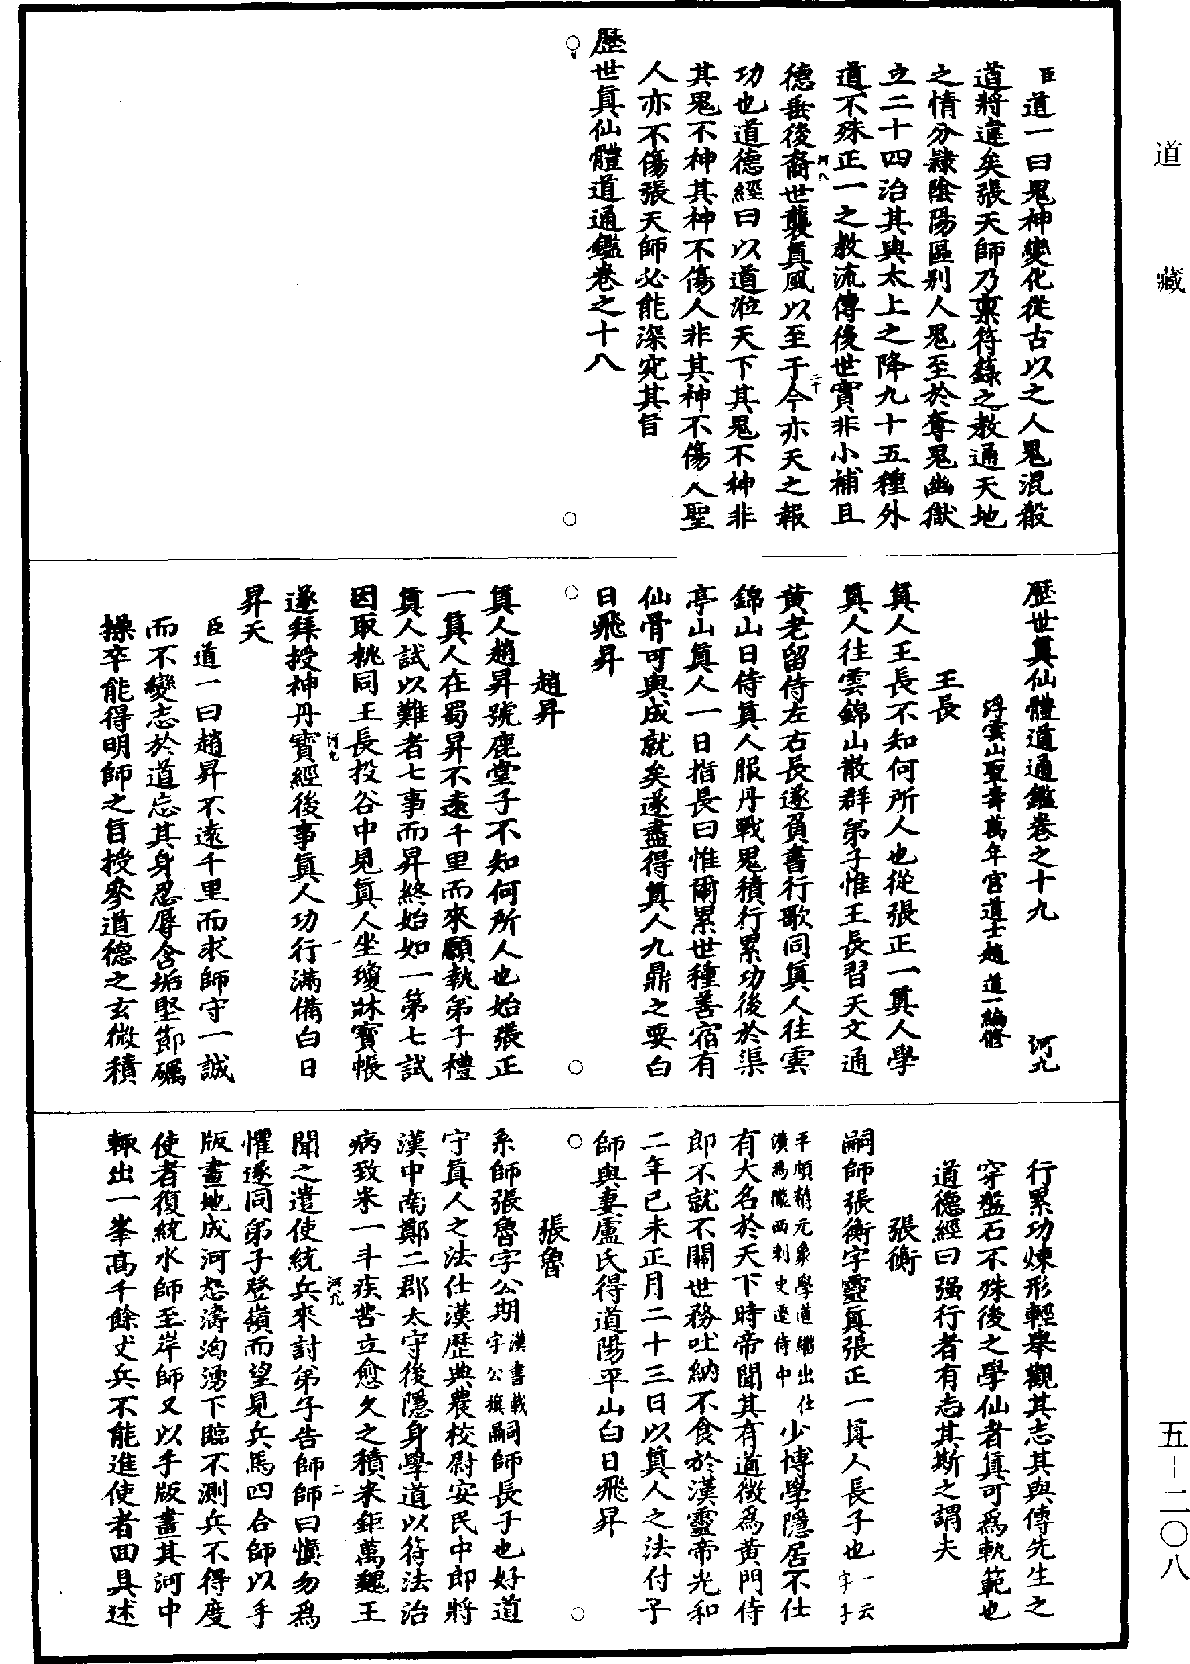 道藏
臣道一曰鬼神變化從古以之人鬼混殽
道將違矣張天師乃稟符籙之教通天地
之情分隸陰陽區别人鬼至於奪鬼幽獄
立二十四治其與太上之降九十五種外
道不殊正一之教流傳後世實非小補且
德垂後裔世襲真風以至于今亦天之報
功也道德經曰以道涖天下其鬼不神非
其鬼不神其神不傷人非其神不傷人聖
人亦不傷張天師必能深究其旨
歷世真仙體道通鑑卷之十八
歷世真仙體道通鑑卷之十九 河九
浮雲山聖壽萬年宮道士趙道一編修
王長
真人王長不知何所人也從張正一真人學
真人往雲錦山散群弟子惟王長習天文通
黃老留侍左右長遂負書行歌同真人往雲
錦山日侍真人服丹戰鬼積行累功後於渠
亭山真人一日指長曰惟爾累世種善宿有
仙骨可與成就矣遂盡得真人九鼎之要白
日飛昇
趙昇
真人趙昇號鹿堂子不知何所人也始張正
一真人在蜀昇不遠千里而來願執弟子禮
真人試以難者七事而昇終始如一第七試
因取桃同王長投谷中見真人坐瓊牀寳帳
遂拜授神丹寳經後事真人功行滿備白日
昇天
臣道一曰趙昇不遠千里而求師守一誠
而不變志於道忘其身忍辱含垢堅節礪
操卒能得明師之旨授參道德之玄微積
行累功煉形輕舉觀其志其與傅先生之
穿盤石不殊後之學仙者真可為軌範也
道德經曰强行者有志其斯之謂夫
張衡
嗣師張衡字靈真張正一真人長子也一云字子
平頗精元象學道繼出仕漢為隴西刺史遷侍中少博學隱居不仕
有大名於天下時帝聞其有道徵為黃門侍
郎不就不關世務吐納不食於漢靈帝光和
二年己未正月二十三日以真人之法付子
師與妻盧氏得道陽平山白日飛昇
張魯
系師張魯字公期漢書載字公旗嗣師長子也好道
守真人之法仕漢歷典農校尉安民中郎將
漢中南鄭二郡太守後隱身學道以符法治
病致米一斗疾苦立愈久之積米鉅萬魏王
聞之遣使統兵來討弟子告師師曰慎勿為
懼遂同弟子登嶺而望見兵馬四合師以手
版畫地成河怒濤洶湧下臨不測兵不得度
使者復統水師至岸師又以手版畫其河中
輙出一峯高千餘丈兵不能進使者回具述
五－二〇八